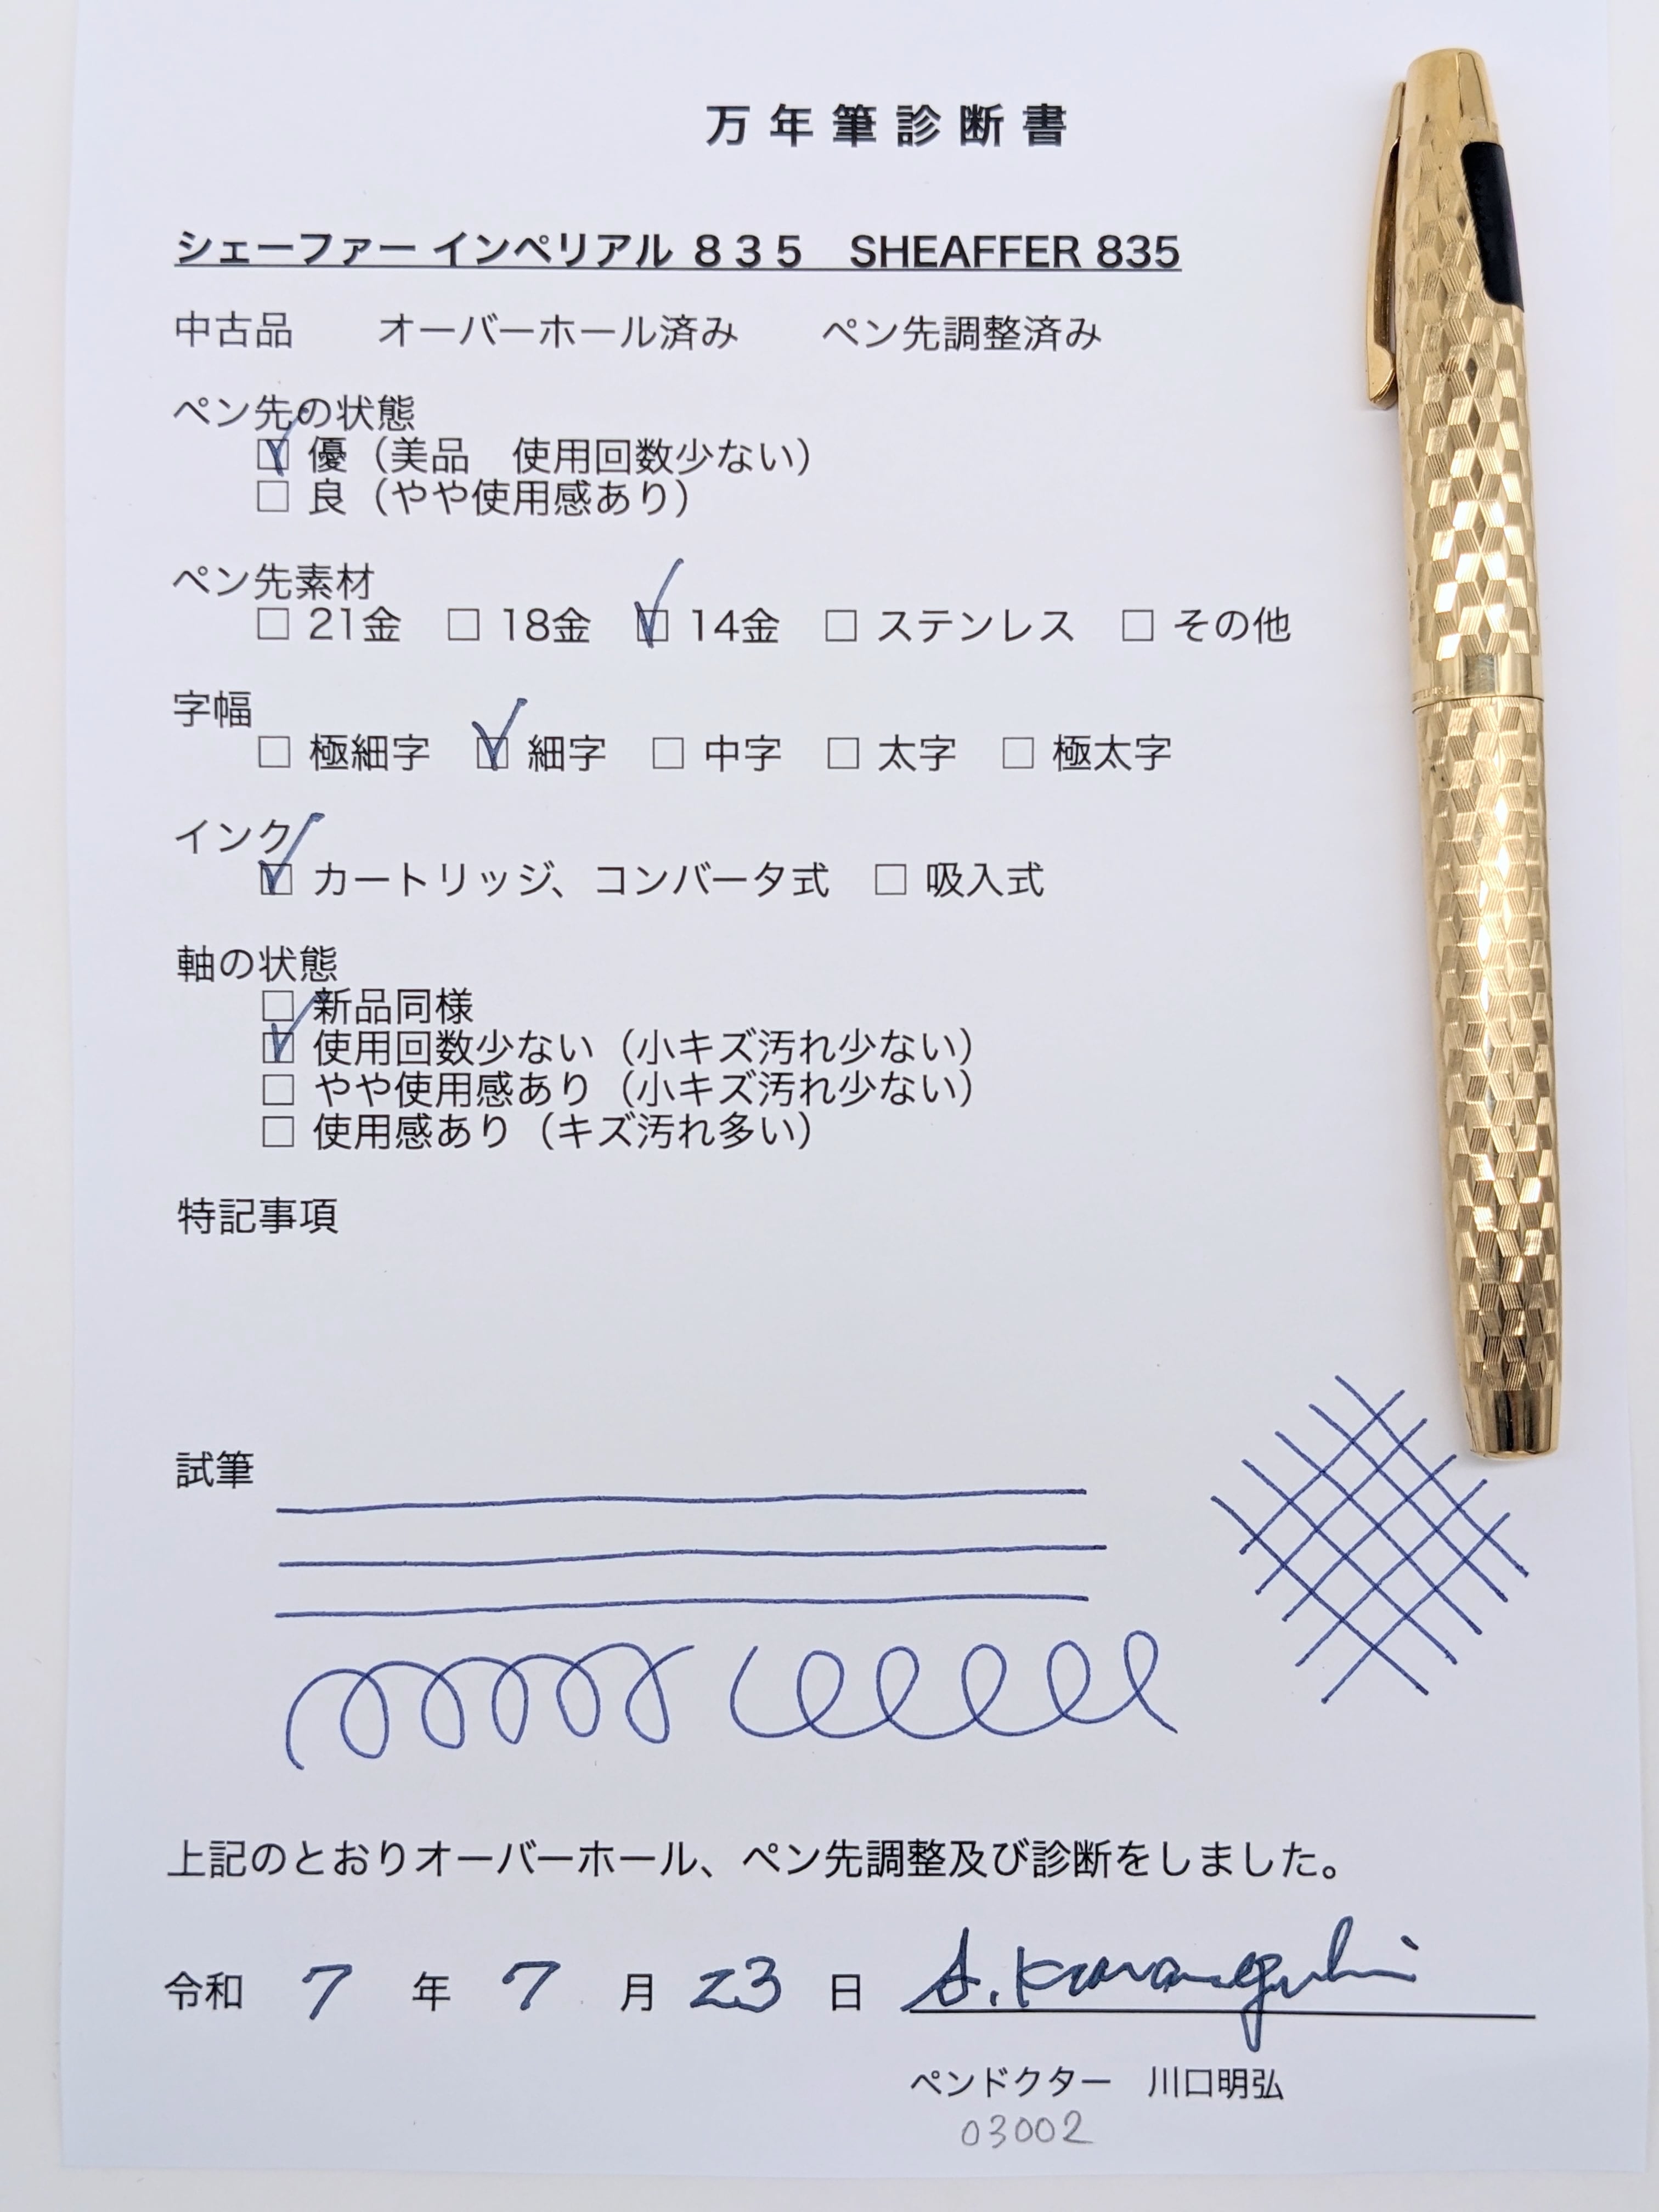 万年筆診断書
シェーファー インペリアル ８３５　SHEAFFER 835
中古品　　オーバーホール済み　　ペン先調整済み
ペン先の状態
☑ 優（美品　使用回数少ない）
☐ 良（やや使用感あり）
ペン先素材
☐ 21金　☐ 18金　☑ 14金　☐ ステンレス　☐ その他
字幅
☐ 極細字　☑ 細字　☐ 中字　☐ 太字　☐ 極太字
インク
☑ カートリッジ、コンバータ式　☐ 吸入式
軸の状態
☐ 新品同様
☑ 使用回数少ない（小キズ汚れ少ない）
☐ やや使用感あり（小キズ汚れ少ない）
☐ 使用感あり（キズ汚れ多い）
特記事項
試筆
上記のとおりオーバーホール、ペン先調整及び診断をしました。
令和 7 年 7 月 23 日 A. Kawaguchi
ペンドクター　川口明弘
03002